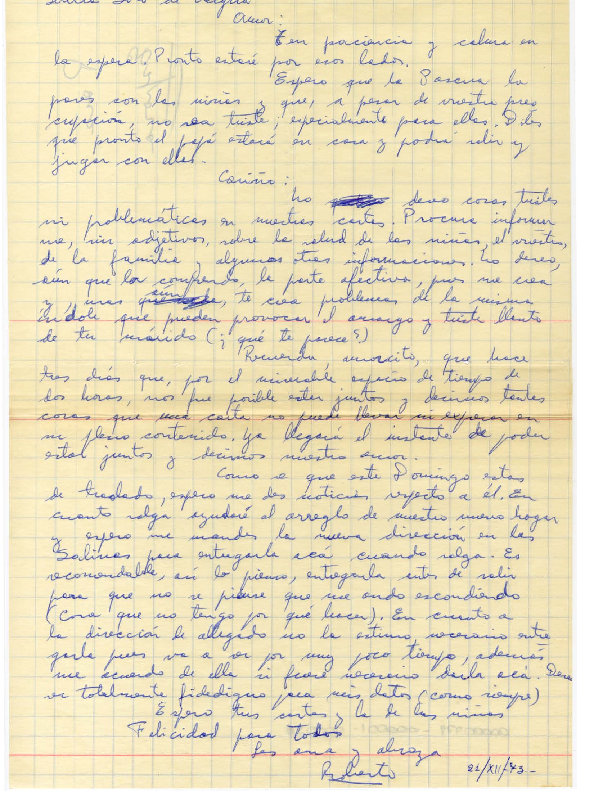 Amor:
Ten paciencia y calma en
la espera. Pronto estaré por esos lados.
Espero que la Pascua la
pases con las niñas y que, a pesar de vuestra preo
cupación, no sea triste; especialmente para ellas. Diles
que pronto el papá estará en casa y podrá salir y
jugar con ellas.-
Cariño:
No deseo cosas tristes
ni problemáticas en nuestras cartas. Procura informar
me, sin adjetivos, sobre la salud de las niñas, el vuestra,
de la familia y algunas otras informaciones. No deseo,
aún que los comprendo, la parte afectiva, pues me crea
y, aún, te crea problemas de la misma
índole que pueden provocar el amargo y triste llanto
de tu marido (¿qué te parece?)
Recuerda amorcito, que hace
tres días que, por el miserable espacio de tiempo de
dos horas, nos fue posible estar juntos y decirnos tantas
cosas que una carta no puede llevar ni expresar en
su pleno contenido. Ya llegará el instante de poder
estar juntos y decirnos nuestro amor.
Como se que este Domingo estas
de traslado, espero me des noticias respecto a él. En
cuanto salga ayudaré al arreglo de nuestro nuevo hogar
y espero me mandes la nueva dirección en las
Salinas para entregarla acá cuando salga. Es
recomendable, así lo pienso, entregarla antes de salir
para que no se piense que me ando escondiendo
(Cosa que no tengo por qué hacer). En cuanto a
la dirección de allegado no la estimo, necesario entre
garla pues va a ser por muy poco tiempo, además
me acuerdo de ella si fuere necesario darla acá. Deseo
ser totalmente fidedigno para mis datos (como siempre)
Espero tus cartas y la de las niñas
Felicidad para todos
Les ama y abraza
Roberto
21/XII/73-